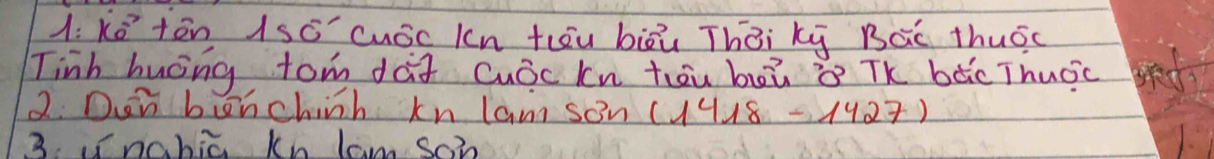 1: Kể tên 1 số cuộc kn tiêu biểu Thời kỳ Bắc thuộc
Tình huống tóm tắt cuộc kn tiêu biểu ở TK bắc Thuộc
2. Diễn biến chính kn lam sơn (1418 - 1427)
3. ý nghĩa kn lam sơn